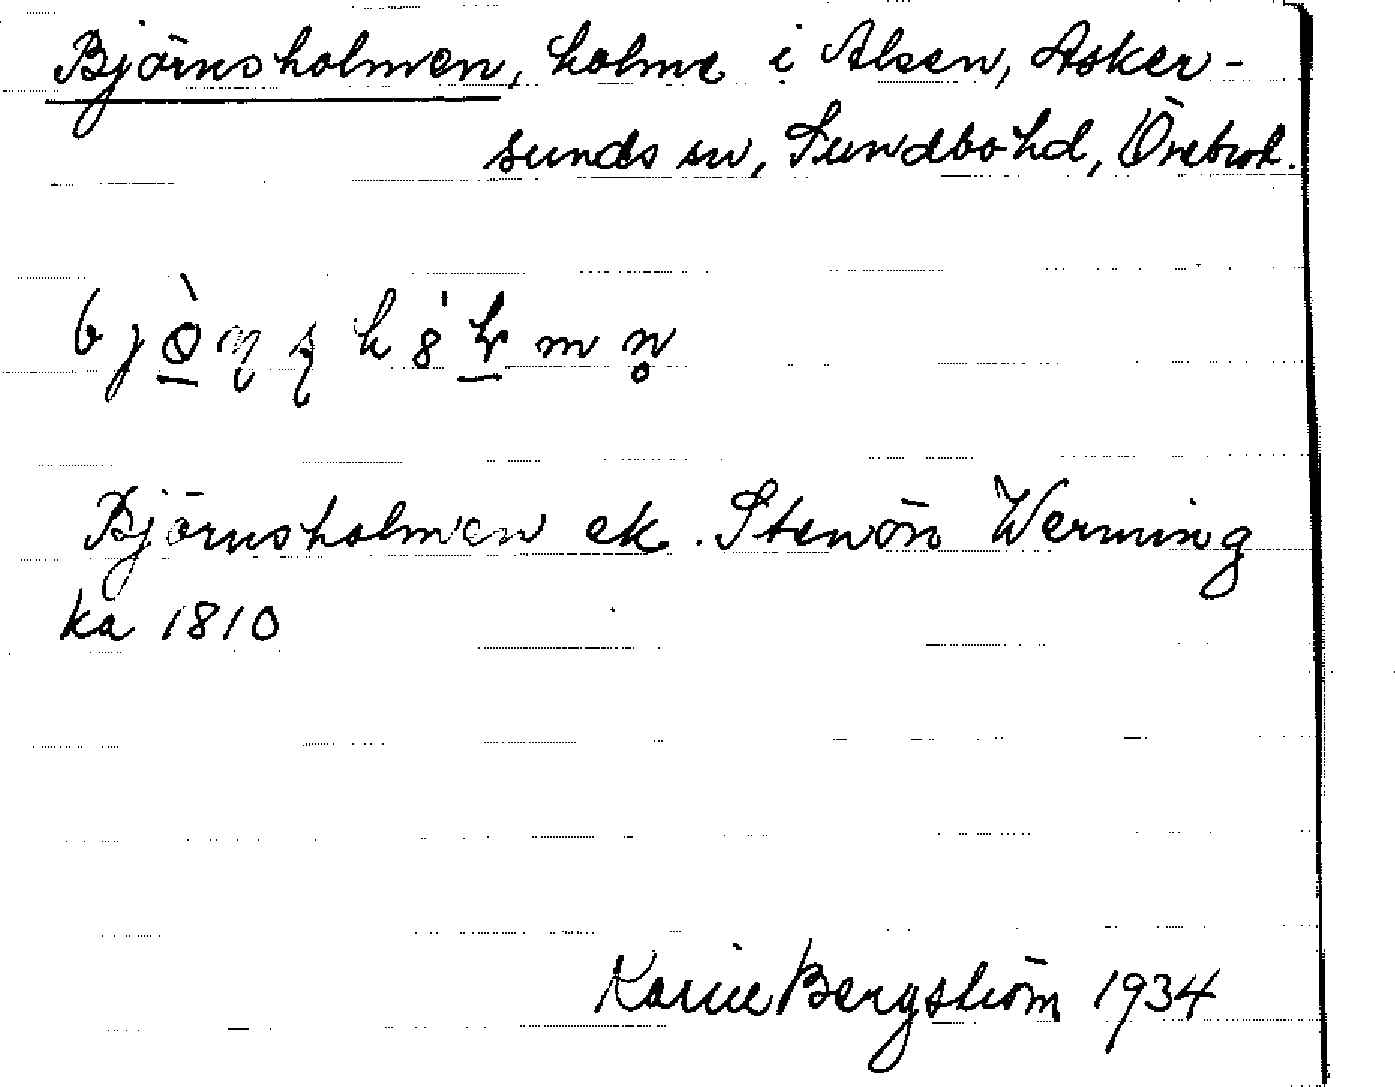 Björnsholmen, holme i Alsen, Asker-
sunds sn, Sundbo hd, Örebro l.
Björnsholmen ek. Stenön Werming
ka 1810
Karin Bergström 1934